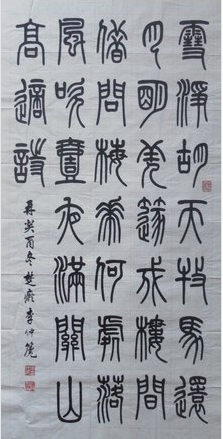 雪淨胡天牧馬還
月明羌篴戍樓間
借問梅華何處落
風吹壹夜滿關山
高適詩
癸酉冬楚李仲